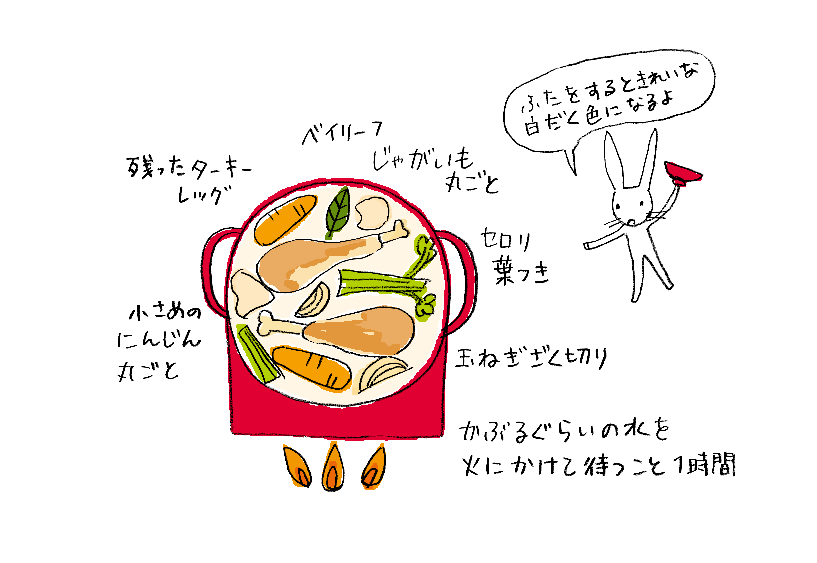 ふたをするときれいな
白だく色になるよ
ベイリーフ
じゃがいも
丸ごと
残ったターキー
レッグ
セロリ
葉つき
小さめの
にんじん
丸ごと
玉ねぎざく切り
かぶるぐらいの水を
火にかけて待つこと1時間